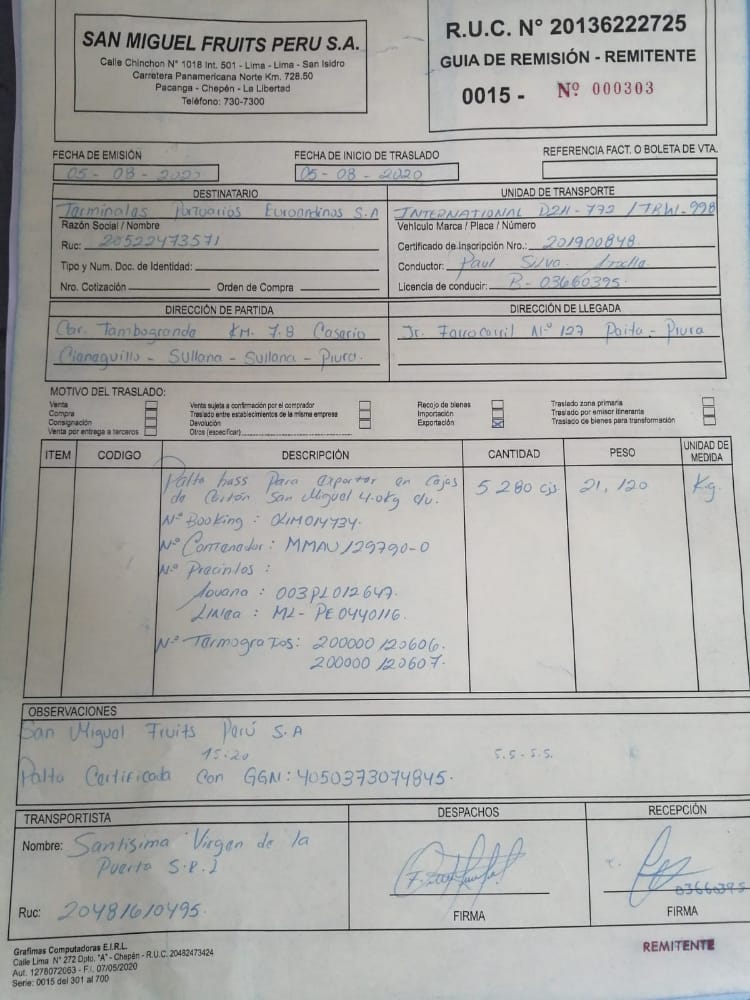 SAN MIGUEL FRUITS PERU S.A.
Calle Chinchon N° 1018 Int. 501 - Lima - Lima - San Isidro
Carretera Panamericana Norte Km. 728.50
Pacanga - Chepén - La Libertad
Teléfono: 730-7300
R.U.C. N° 20136222725
GUIA DE REMISIÓN - REMITENTE
0015 - Nº 000303
FECHA DE EMISIÓN
05 - 08 - 2020
FECHA DE INICIO DE TRASLADO
05 - 08 - 2020
REFERENCIA FACT. O BOLETA DE VTA.
DESTINATARIO
Terminales Portuarios Euroandinos S.A
Razón Social / Nombre
Ruc: 20522473571
Tipo y Num. Doc. de Identidad:
Nro. Cotización Orden de Compra
UNIDAD DE TRANSPORTE
INTERNATIONAL D2H-772 / TRW-998
Vehículo Marca / Placa / Número
Certificado de Inscripción Nro.: 201900848
Conductor: Paul Silva
Licencia de conducir: B-03660395
DIRECCIÓN DE PARTIDA
Car. Tambogrande KM. 7.8 Caserio
Cieneguillo - Sullana - Sullana - Piura.
DIRECCIÓN DE LLEGADA
Jr. Ferrocarril N° 127 Paita - Piura
MOTIVO DEL TRASLADO:
Venta
Compra
Consignación
Venta por entrega a terceros
Venta sujeta a confirmación por el comprador
Traslado entre establecimientos de la misma empresa
Devolución
Otros (especificar)
Recojo de bienes
Importación
Exportación
Traslado zona primaria
Traslado por emisor itinerante
Traslado de bienes para transformación
ITEM CODIGO DESCRIPCIÓN CANTIDAD PESO UNIDAD DE MEDIDA
Palta hass Para exportar en Cajas 5 280 cjs. 21,120 Kg.
de Cartón San Miguel 4.0kg c/u.
N° Booking : 041MO14734.
N° Contenedor : MMAU129790-0
N° Precintos :
Aduana : 003PL012647.
Linea : ML-PE0440116.
N° Termografos: 200000120606.
200000120607.
OBSERVACIONES
San Miguel Fruits Perú S.A
15:20 S.S - S.S.
Palta Certificada Con GGN: 4050373074845.
TRANSPORTISTA
Nombre: Santisima Virgen de la
Puerta S.R.L
Ruc: 20481610495.
DESPACHOS
FIRMA
RECEPCIÓN
03660395
FIRMA
Grafimas Computadoras E.I.R.L.
Calle Lima N° 272 Dpto. "A" - Chepén - R.U.C. 20482473424
Aut. 1278072063 - F.I. 07/05/2020
Serie: 0015 del 301 al 700
REMITENTE